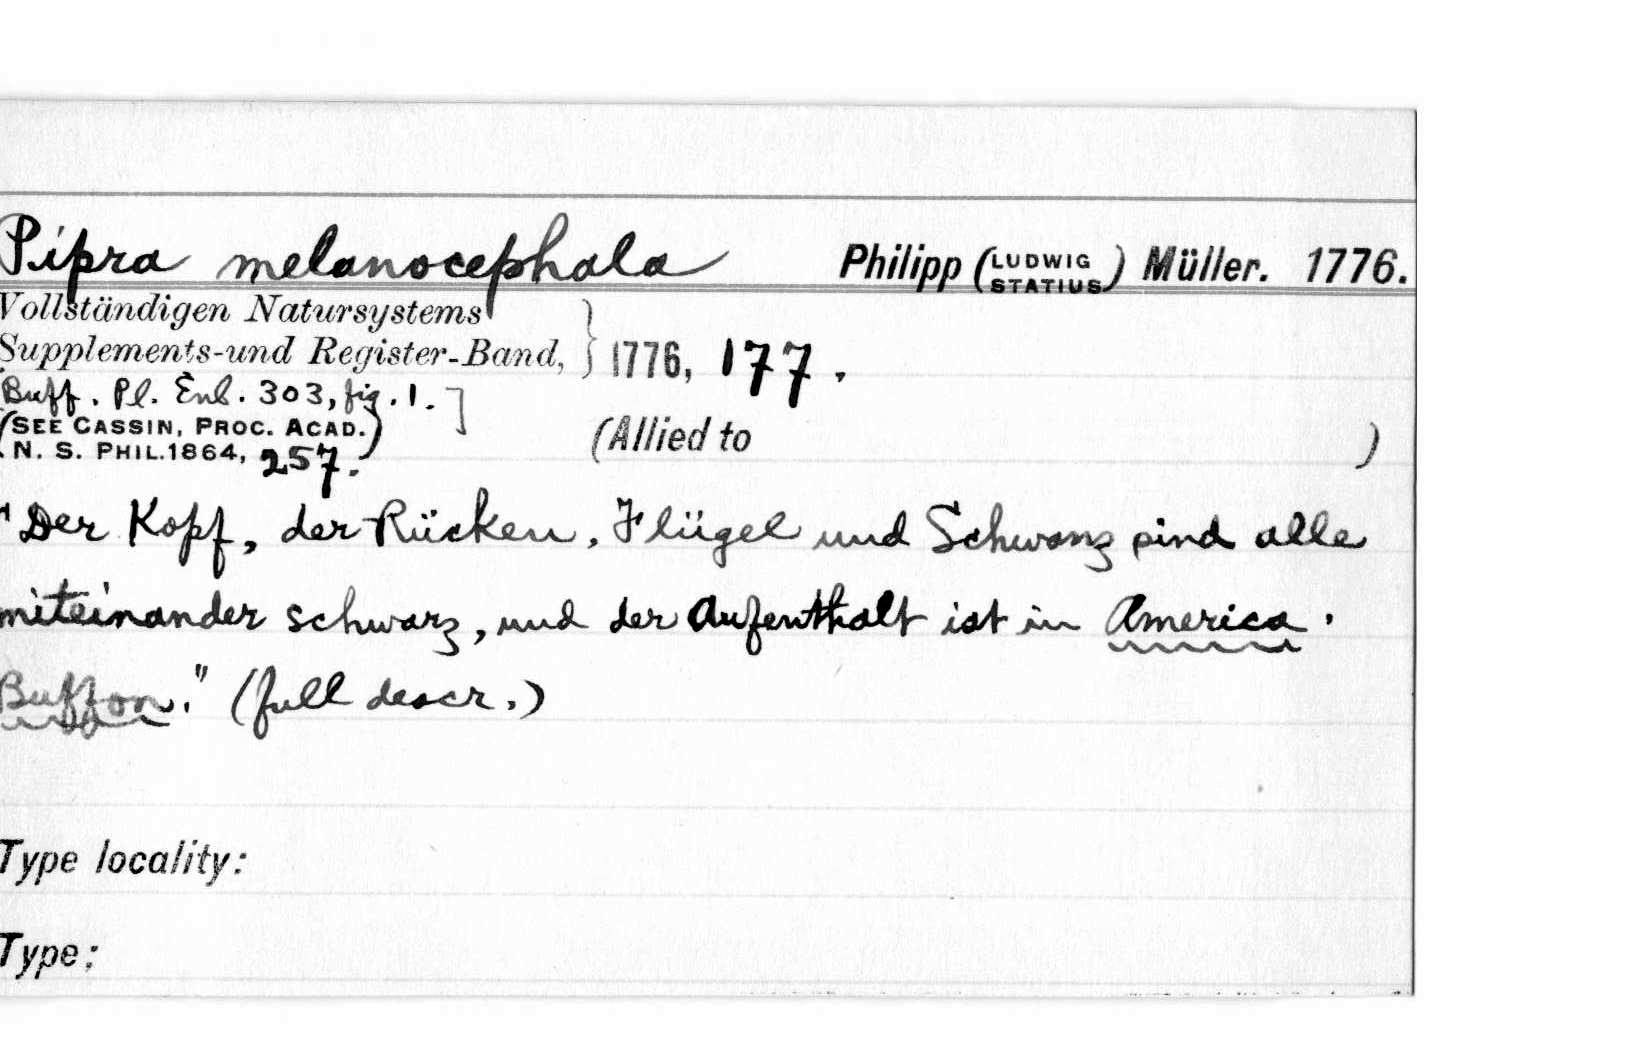 Pipra melanocephala Philipp (LUDWIG STATIUS) Müller. 1776.
Vollständigen Natursystems
Supplements-und Register-Band, } 1776, 177.
Buff. Pl. Enl. 303, fig. 1.]
(SEE CASSIN, PROC. ACAD.
N. S. PHIL. 1864, 257.) (Allied to )
"Der Kopf, der Rücken, Flügel und Schwanz sind alle
miteinander schwarz, und der Aufenthalt ist in America.
Buffon." (full descr.)
Type locality:
Type: